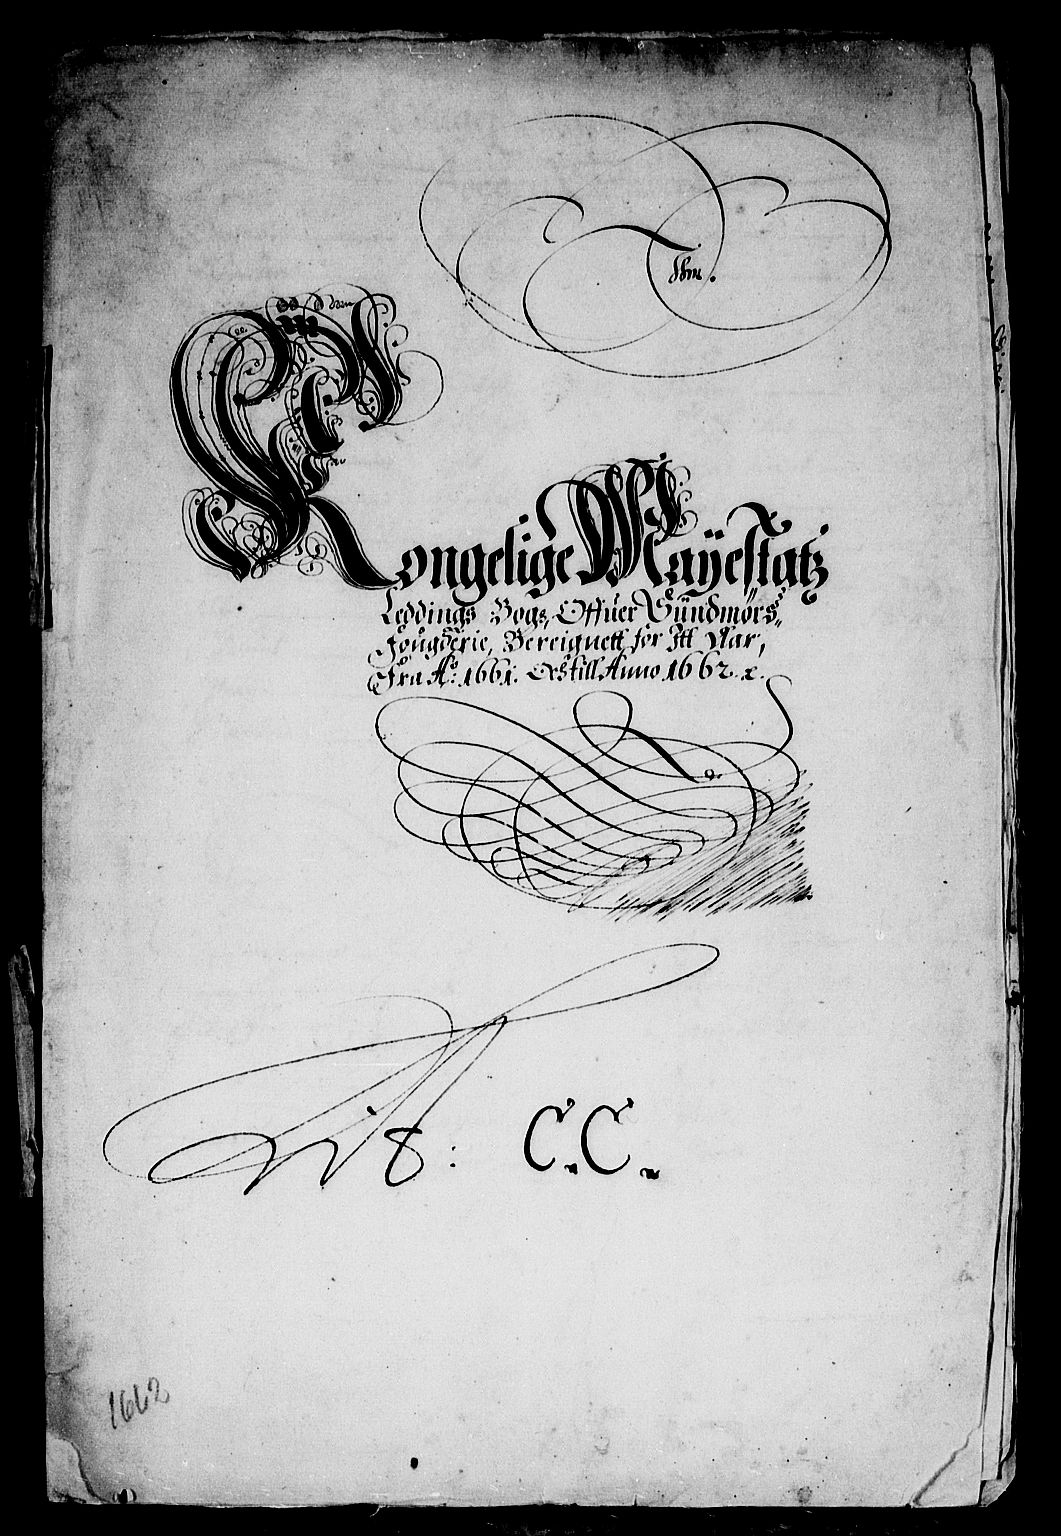 Kongelige Mayestatz
Leddings Bogs, Offuer Sündmörs
Fougderie, Bereignett for Itt Aar,
Fra Aō: 1661. Och till Anno 1662. &.
Lit: C.C.
1662